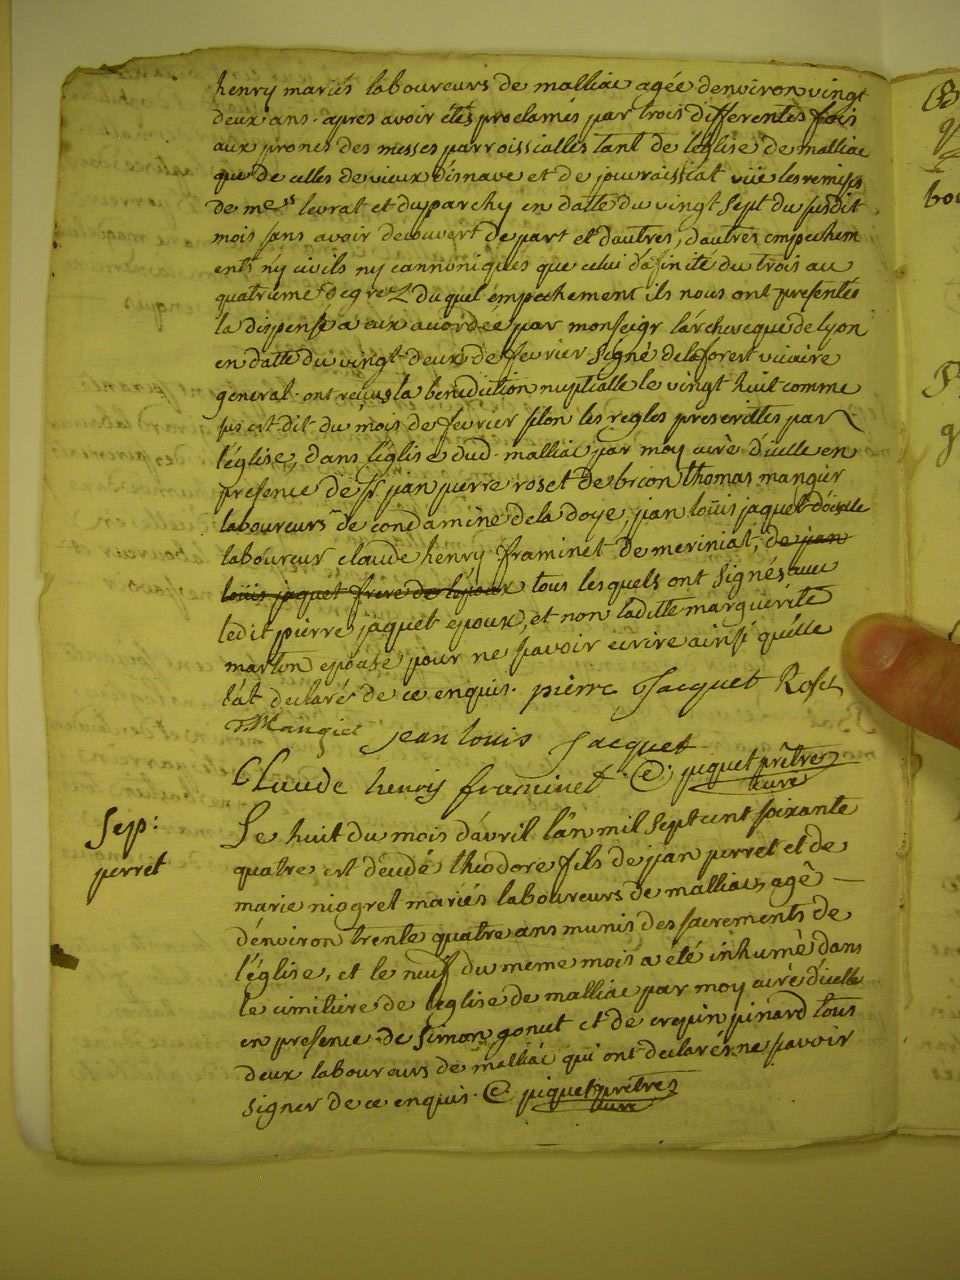 henry mariés laboureurs de malliac agée denviron vingt
deux ans. apres avoir étés proclamés par trois differentes fois
aux prones des messes parroissialles tant de léglise de malliac
que de celles de vieux d'isnave et de jouvraissiat viie les remises
de mers levrat et duparchy en datte du vingt sept du susdit
mois sans avoir decouvert de part et d'autres, d'autres empechem
ents ny civils ny cannoniques que celui dafinité du trois au
quatrieme degrez duquel empechement ils nous ont presentés
la dispense a eux accordée par monseigr lárchevecque de lyon
en datte du vingt deux de fevrier signé delaforest vicaire
general. ont reçus la benediction nuptialle le vingt huit comme
sus est dit du mois de fevrier selon les regles prescrittes par
l'église, dans l'église dud. malliac par moy curé d'icelle en
presence de sr jean pierre roset de brion thomas mangier
laboureurs de condamine dela doye, jean loüis jaquet d'oiselle
laboureur claude henry framinet de meriniat, de jean
loüis jaquet frere de l'epoux tous lesquels ont signés avec
ledit pierre jaquet epoux, et non laditte marguerite
marton epouse pour ne savoir ecrire ainsi quélle
lát declaré de ce enquis. pierre Jacquet Roset
T. Mangier jean louis Jacquet
Claude henry framinet C. piquet prêtre
curé
Sep:
perret
Le huit du mois d'avril l'an mil sept cent soixante
quatre est décédé théodore fils de jean perret et de
marie niogret mariés laboureurs de malliac, agé
d'environ trente quatre ans munis des sacrements de
l'église, et le neuf du meme mois a été inhumé dans
le cimitiere de l'église de malliac par moy curé d'icelle
en presence de simon gonet et de crepin pinard tous
deux laboureurs de malliac qui ont declarés ne savoir
signer de ce enquis. C. piquet prêtre
curé